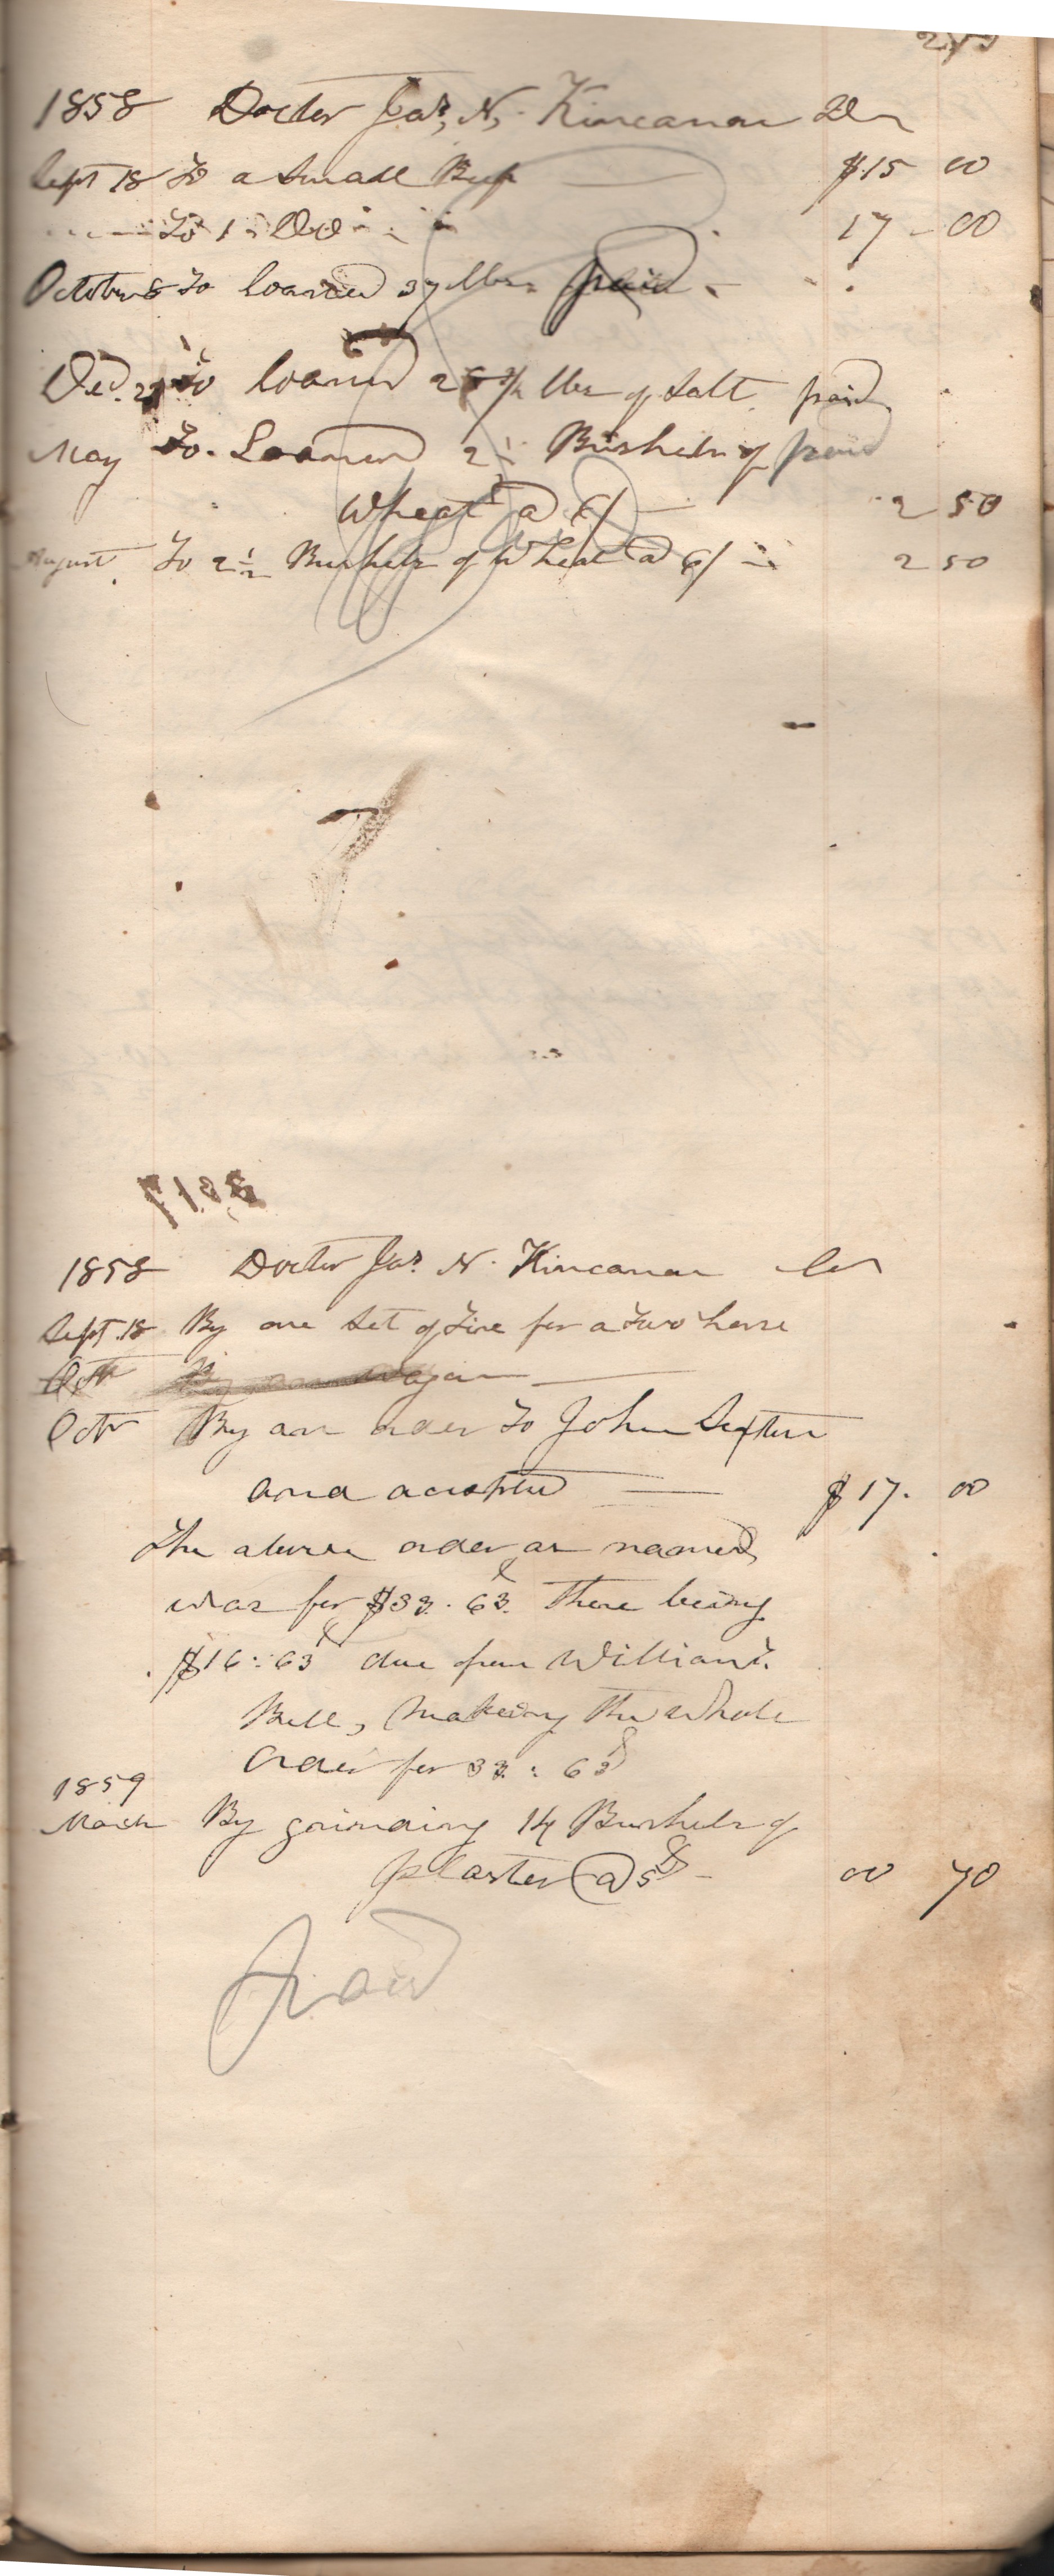 1858 Docter Jas, N, Kincanon Dr
Sept 18 To a Small Beef $15 00
To 1 Do 17 - 00
October 8 To loaned 37 lbs paid
Dec. To loaned lbs of Salt paid
May To. Loaned 2½ Bushels of paid
Wheat a 6/ 2 50
August To 2½ Bushels of Wheat a 6/ 2 50
1858 Docter Jas. N. Kincanon Cr
Sept. 18 By one Set of Tire for a two horse
Wagon
Octr By an order to John Sexton
and accepted $17. 00
The above order as named
was for $33. 63. There being
$16: 63 due from William
Bell, Making the whole
Order for 33. : 63
1859
March By grinding 14 Bushels of
plaster @ 5 00 70
Paid